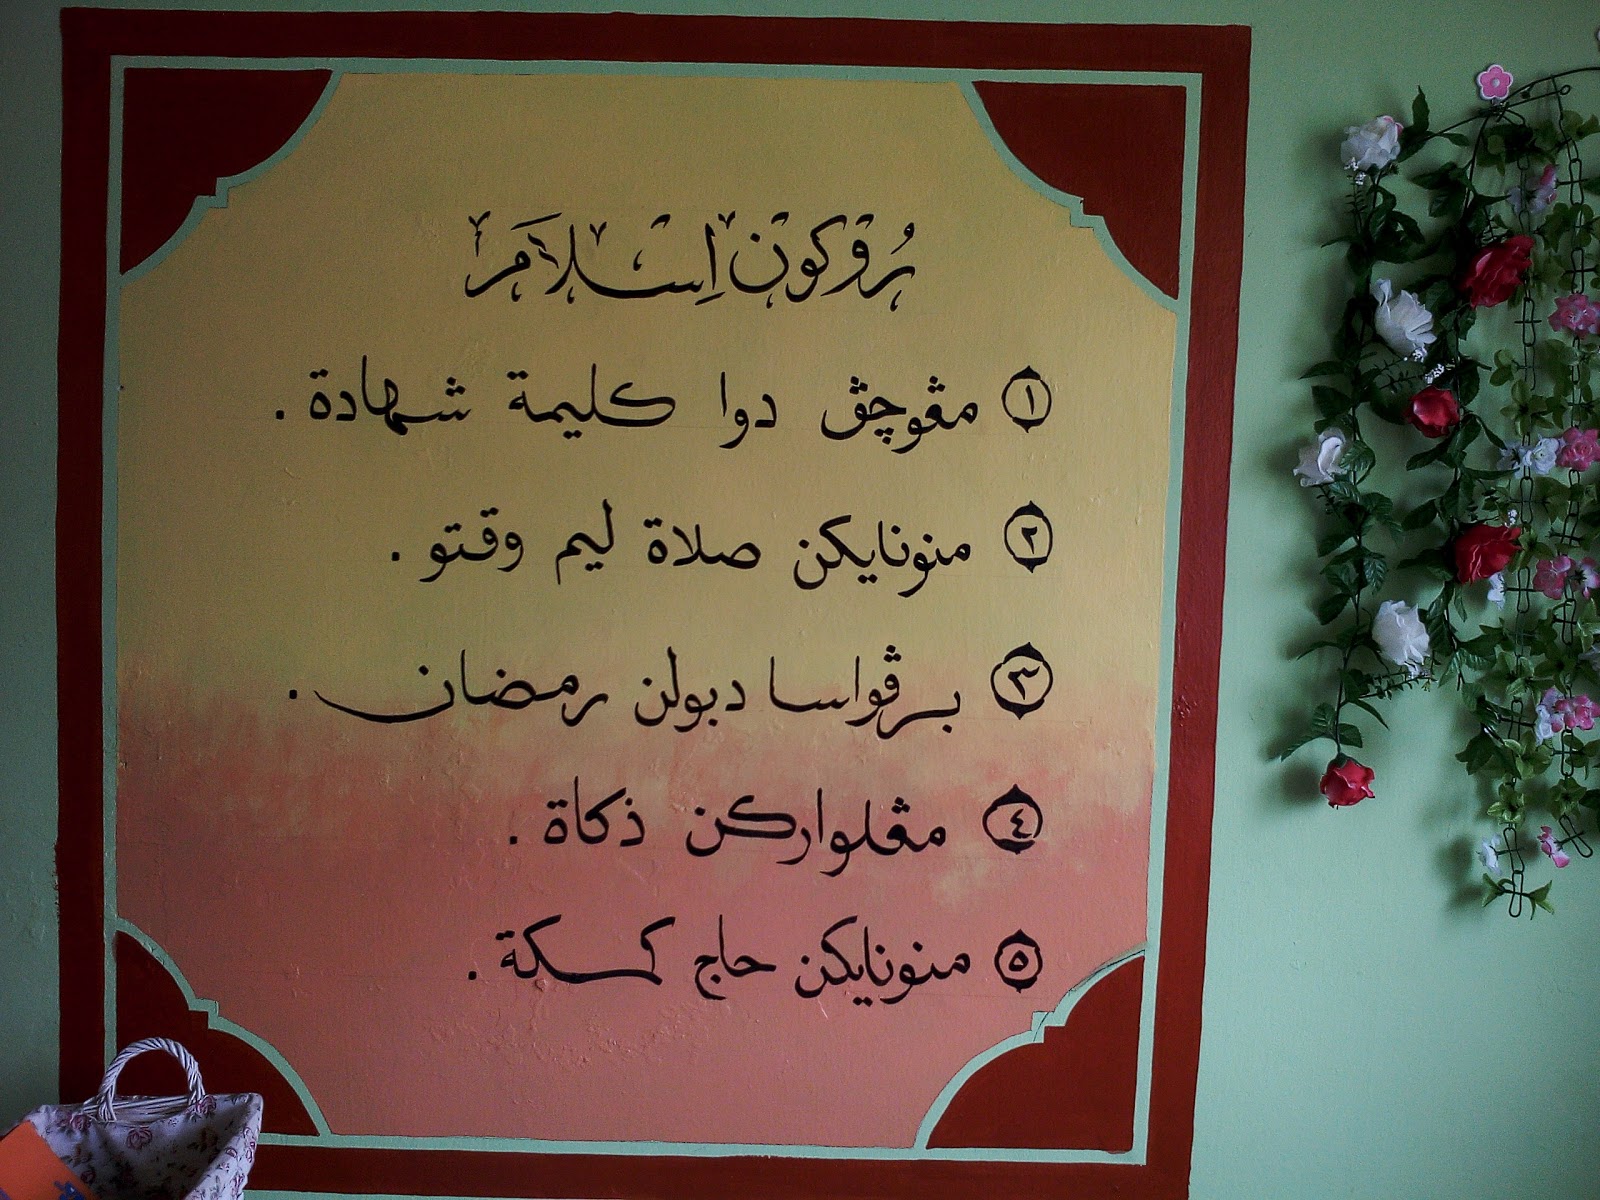 روكون إسلام
١ مڠوچڤ دوا كليمة شهادة.
٢ منونايكن صلاة ليم وقتو.
٣ برڤواسا دبولن رمضان.
٤ مڠلواركن ذكاة.
٥ منونايكن حاج كمكة.